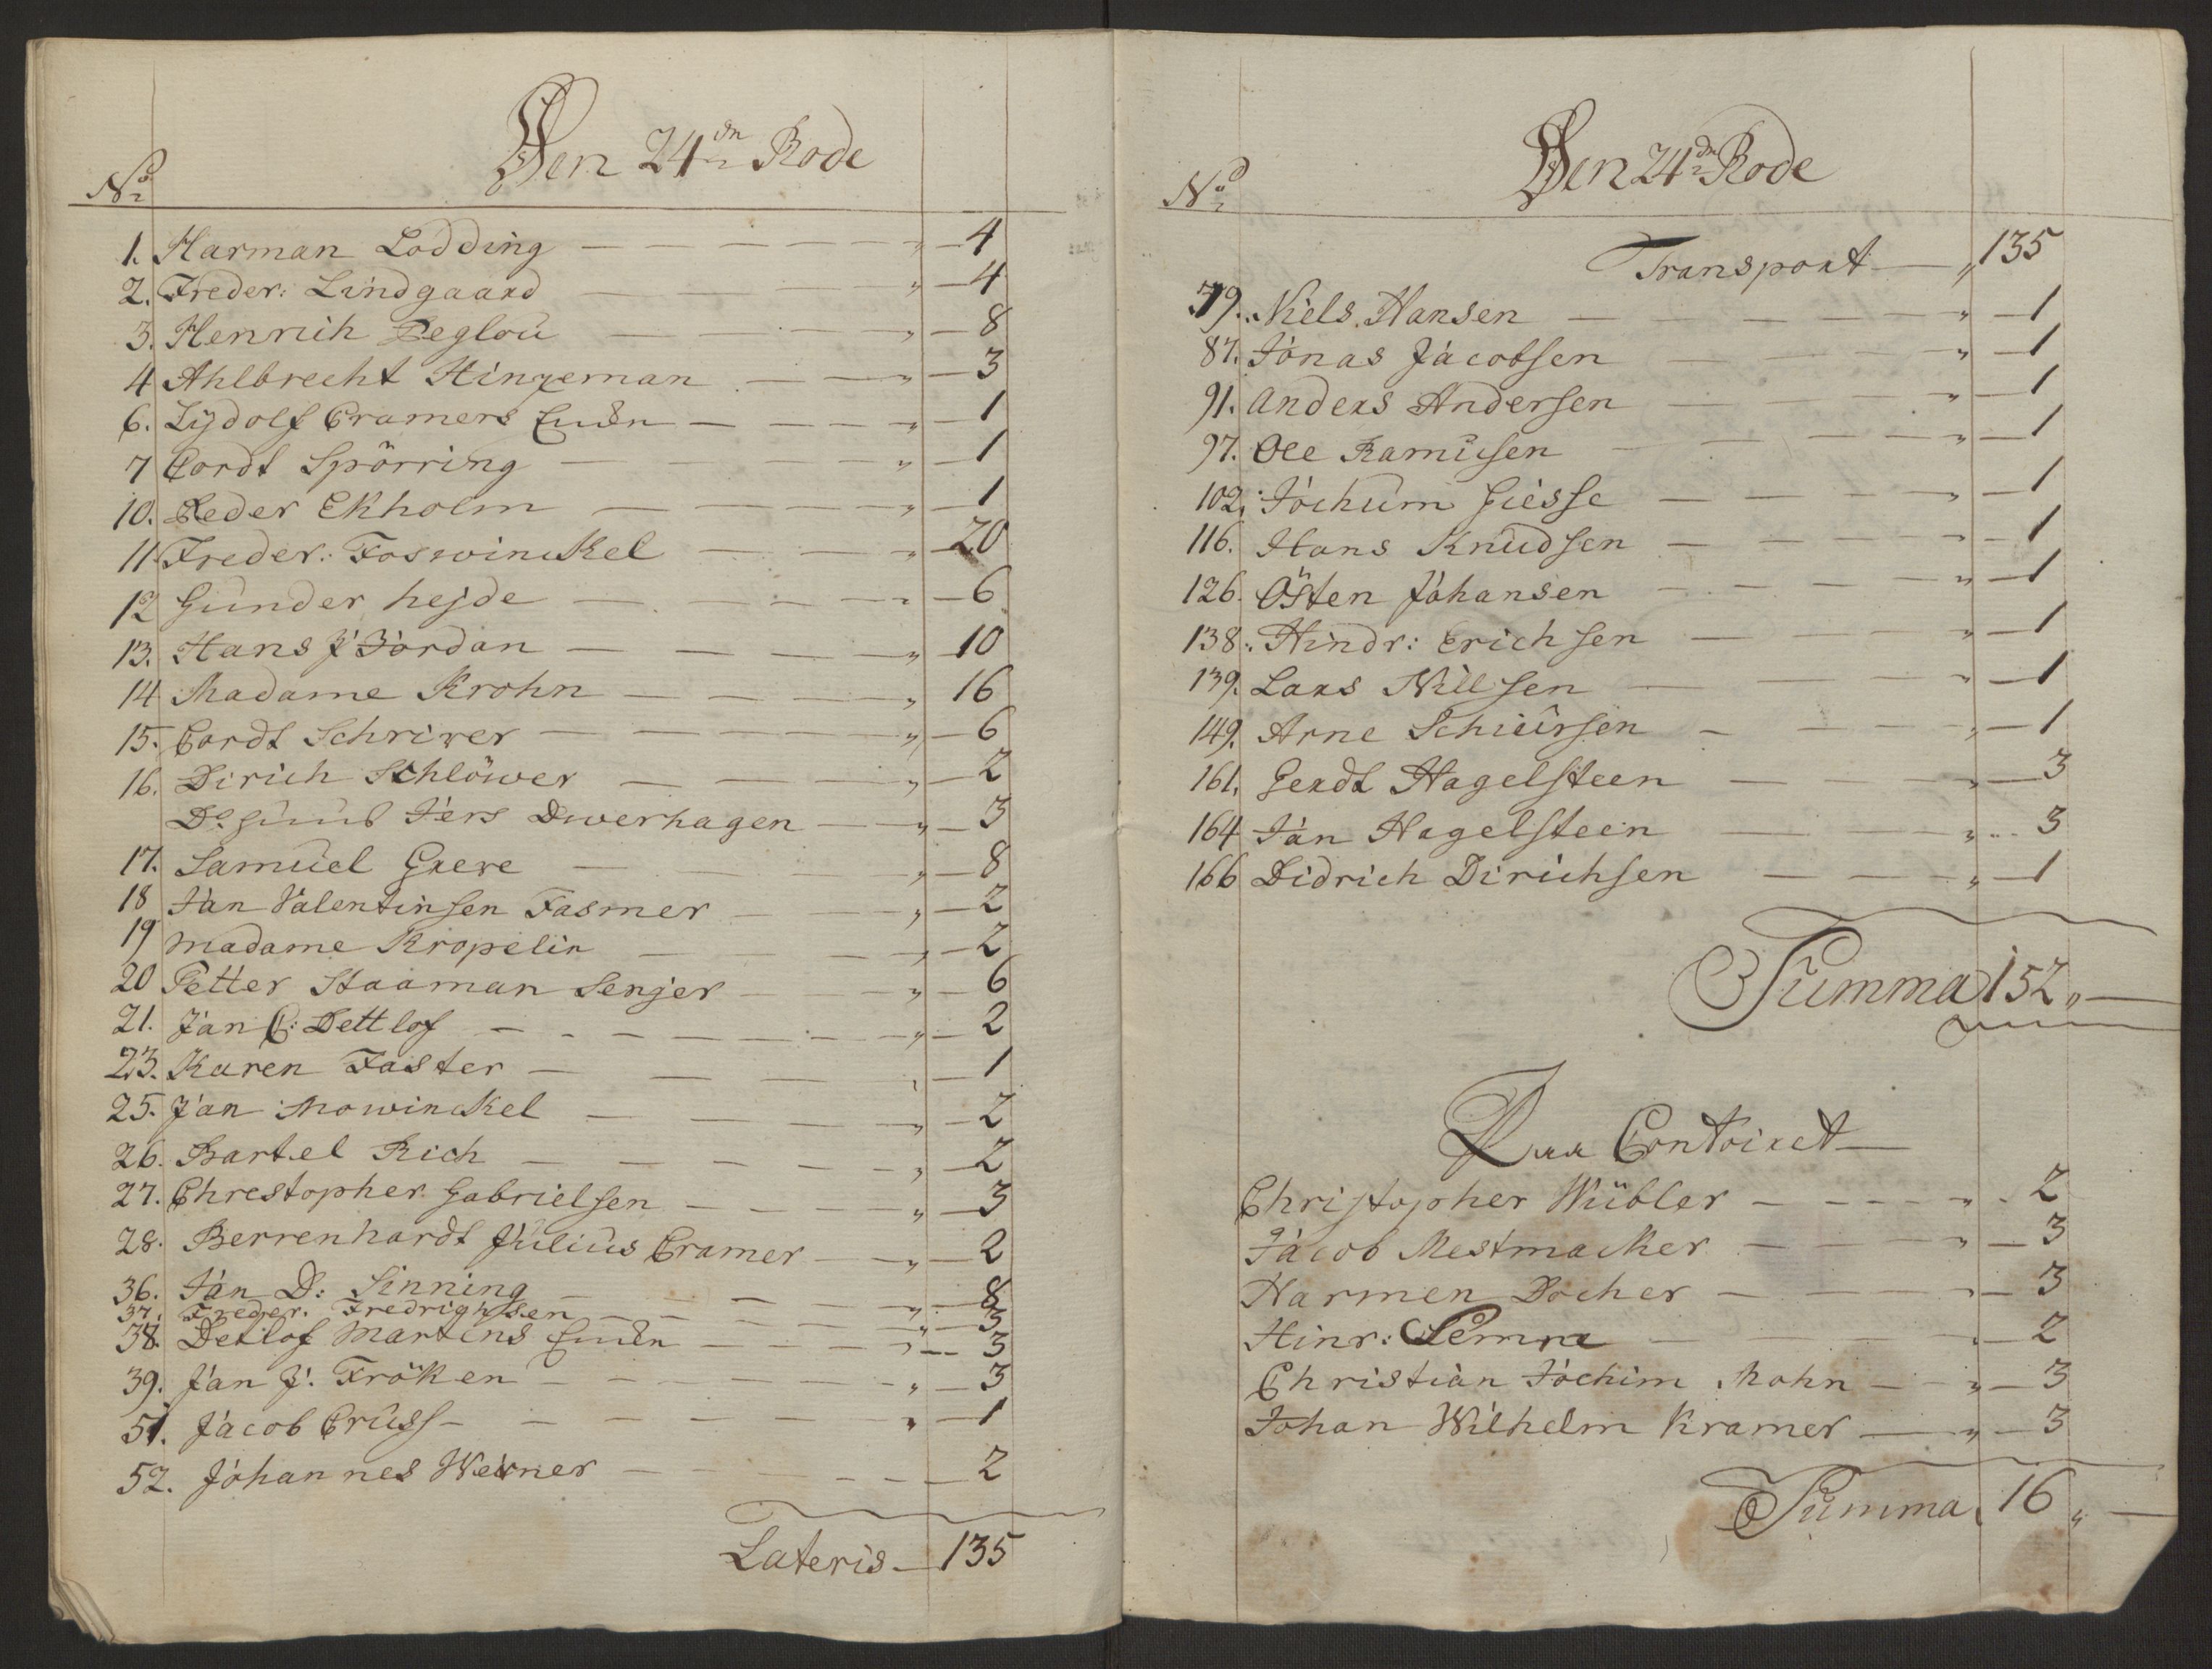 Den 24dn Rode
No
1. Harman Lodding 4
2. Freder: Lindgaard 4
3. Henrich Peglou 8
4 Ahlbrecht Hinzeman 3
6. Lydolf Cramers Enckn 1
7 Cordt Spörring 1
10. Peder Ekholm 1
11 Freder: Foswinckel 20
12 Gunder hejde 6
13. Hans J Jordan 10
14 Madame Krohn 16
15. Cordt Schriver 6
16. Dirich Schlöwer 2
Do Jers Dwerhagen 3
17. Samuel Greve 8
18 Jan Valentinsen Fasmer 2
19 Madame Kropelin 2
20 Petter Staaman Senjer 6
21. Jan C: Dettlof 2
23. Karen Faster 1
25. Jan Mowinckel 2
26. Bartel Rich 2
27. Chrestopher Gabrielsen 3
28. Berrenhardt Julius Cramer 2
36. Jan D: Sinning 8
37. Freder. Fredrichsen 3
38. Detlof Martens Enckn 3
39. Jan J. Fröken 3
51. Jacob Cruss 1
52. Johannes Weiner 2
Lateris 135
Den 24dn Rode
No
Transport 135
79. Niels Hansen 1
87. Jonas Jacobsen 1
91. Anders Andersen 1
97. Ole Ramusen 1
102. Jochum Giesse 1
116. Hans Knudsen 1
126. Östen Johansen 1
138. Hindr: Erichsen 1
139. Lars Nillsen 1
149. Arne Schiursen 1
161. Gerdt Hagelsteen 3
164 Jan Hagelsteen 3
166 Didrich Dirichsen 1
Summa 152
Paa Contoiret
Christopher Wübler 2
Jacob Mestmacker 3
Harmen Docher 3
Hinr: Lemne 2
Christian Jochim Mohn 3
Johan Wilhelm Kramer 3
Summa 16